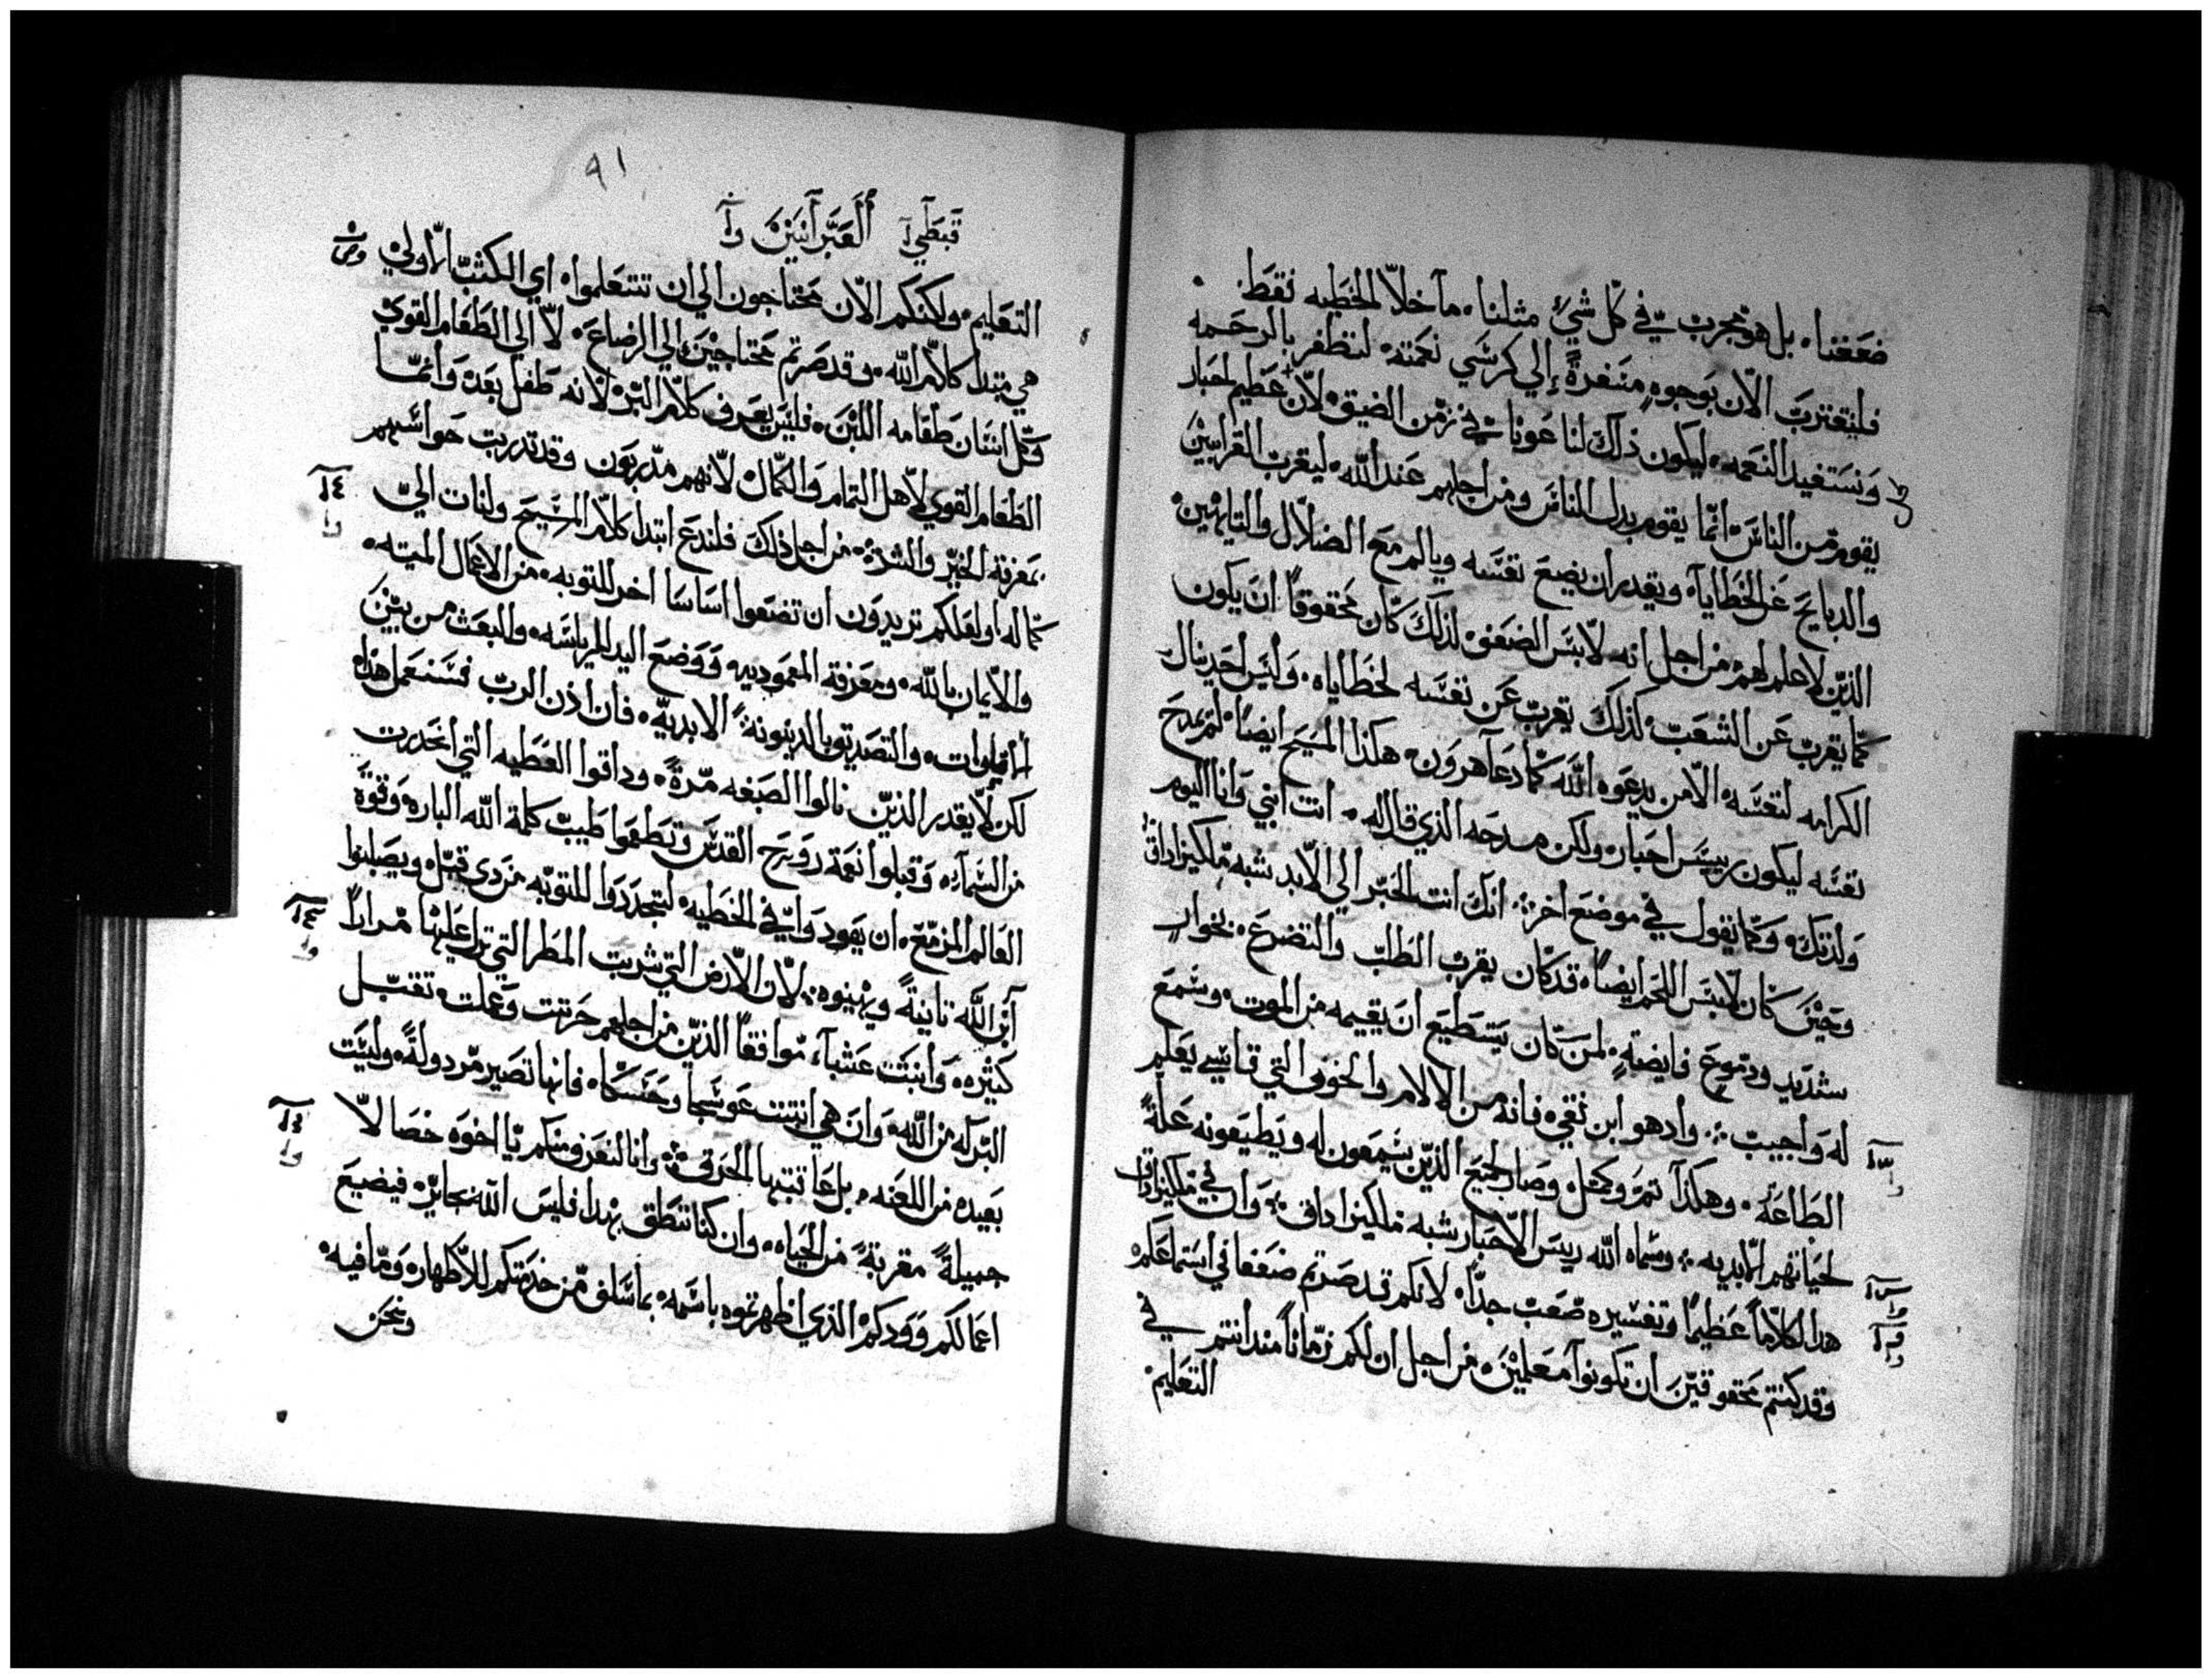 ضعفنا. بل هو مجرب في كل شي مثلنا. ما خلا الخطيه فقط.
فلنقترب الان بوجوه منفرة إلى كرسي نعمته. لنظفر بالرحمه
ونستفيد النعمه. ليكون ذلك لنا عونا في زمن الضيق. لان عظيم احبار
يقوم من الناس. انما يقوم بدل الناس ومن اجلهم عند الله. ليقرب القرابين
والدبايح عن الخطايا. ويقدر ان يضع نفسه ويالم مع الضلال والتايهين
الذين لا علم لهم. من اجل انه لابس الضعف. لذلك كان محقوقا ان يكون
كما يقرب عن الشعب. كذلك يقرب عن نفسه لخطاياه. وليس احد ينال
الكرامه لنفسه. الا من يدعوه الله كما دعا هرون. هكذا المسيح ايضا لم يمدح
نفسه ليكون رييس احبار. ولكن مدحه الذي قال له. انت ابني وانا اليوم
ولدتك. وكما يقول في موضع اخر. انك انت الحبر الي الابد بشبه ملكيزاداق
وحين كان لابس اللحم ايضا. قد كان يقرب الطلب والتضرع. بخوار
شديد ودموع فايضة. لمن كان يستطيع ان يقيمه من الموت. وسمع
له واجيب. واد هو ابن نقي. فانه من الالام والخوف التي قاسي يعلم
الطاعه. وهكذا تم وكمل. وصار لجميع الذين يسمعون له ويطيعونه علة
لحياتهم الابديه. وسماه الله رييس الاحبار شبه ملكيزاداق. وان في ملكيزاداق
هدا لكلاما عظيما وتفسيره صعب جدا. لانكم قد صرتم ضعفا في استماعكم
وقد كنتم محقوقين ان تكونوا معلمين. من اجل ان لكم زمانا مند انتم في
التعليم
٩١
قبطي العبرانيين
التعليم. ولكنكم الان محتاجون الي ان تتعلموا. اي الكتب الاولي
هي مبتدا كلام الله. وقد صرتم محتاجين الي الرضاع. لا الي الطعام القوي
وكل انسان طعامه اللبن. فليس يعرف كلام البر لانه طفل بعد وانما
الطعام القوي لاهل التمام والكمال لانهم مدربون وقد تدربت حواسهم
بمعرفة الخير والشر. من اجل ذلك فلندع ابتدا كلام المسيح ولنات الي
كماله اولعلكم تريدون ان تضعوا اساسا اخر للتوبه. من الاعمال الميته.
والايمان بالله. ومعرفة المعموديه ووضع اليد للرياسه. والبعث من بين
الاموات. والتصديق بالدينونة الابديه. فان اذن الرب فسنعمل هذا
لكن لا يقدر الذين نالوا الصبغه مرة. وداقوا العطيه التي انحدرت
من السماء. وقبلوا نعمة روح القدس وتطعموا طيب كلمة الله الباره وقوة
العالم المزمع. ان يعودوا في الخطيه. ليتجددوا للتوبه من دي قبل ويصلبوا
ابن الله تانية ويهينوه. لان الارض التي شربت المطر التي نزل عليها مرارا
كثيره. وانبتت عشبا. موافقا الذين من اجلهم حرتت وعملت. تقتبل
البركه من الله. وان هي انبتت عوسجا وحسكا. فانها تصير مردولة. وليست
بعيده من اللعنه. بل عاقبتها الحرق. وانا لنعرف منكم يا اخوه خصالا
جميلة مقربة من الحياه. وان كنا ننطق بهدا. فليس الله بجاير. فيضيع
اعمالكم وودكم الذي اظهرتموه باسمه. بما سلف من خدمتكم للاطهار. وما فيه.
ونحن